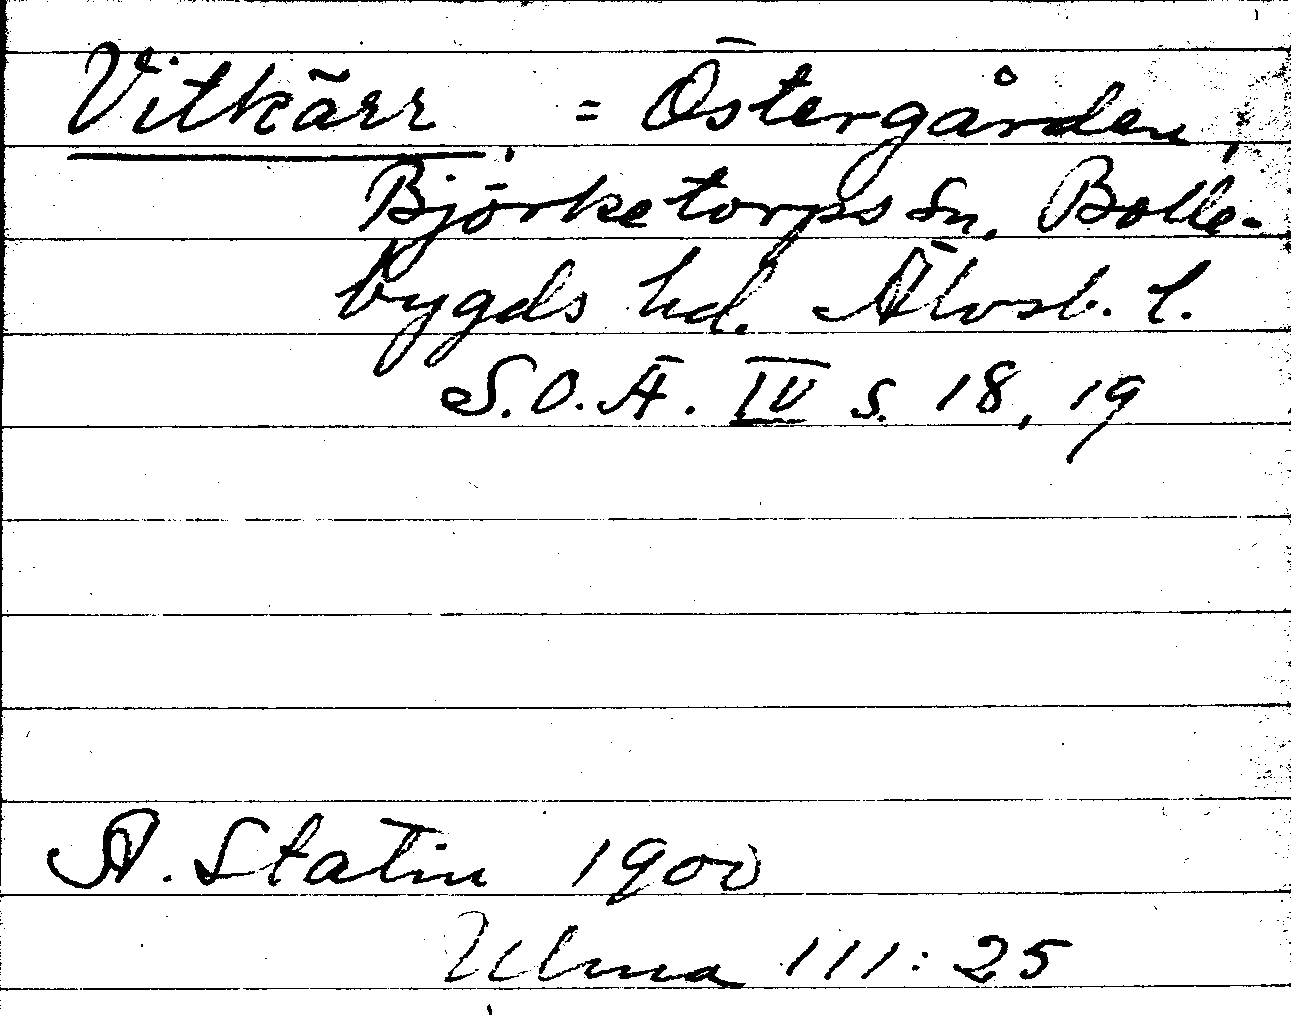 Vitkärr, = Östergården,
Björketorps sn. Bolle-
bygds hd. Älvsb. l.
S.O.Ä. IV s. 18, 19
A. Statin 1900
Ulma 111:25